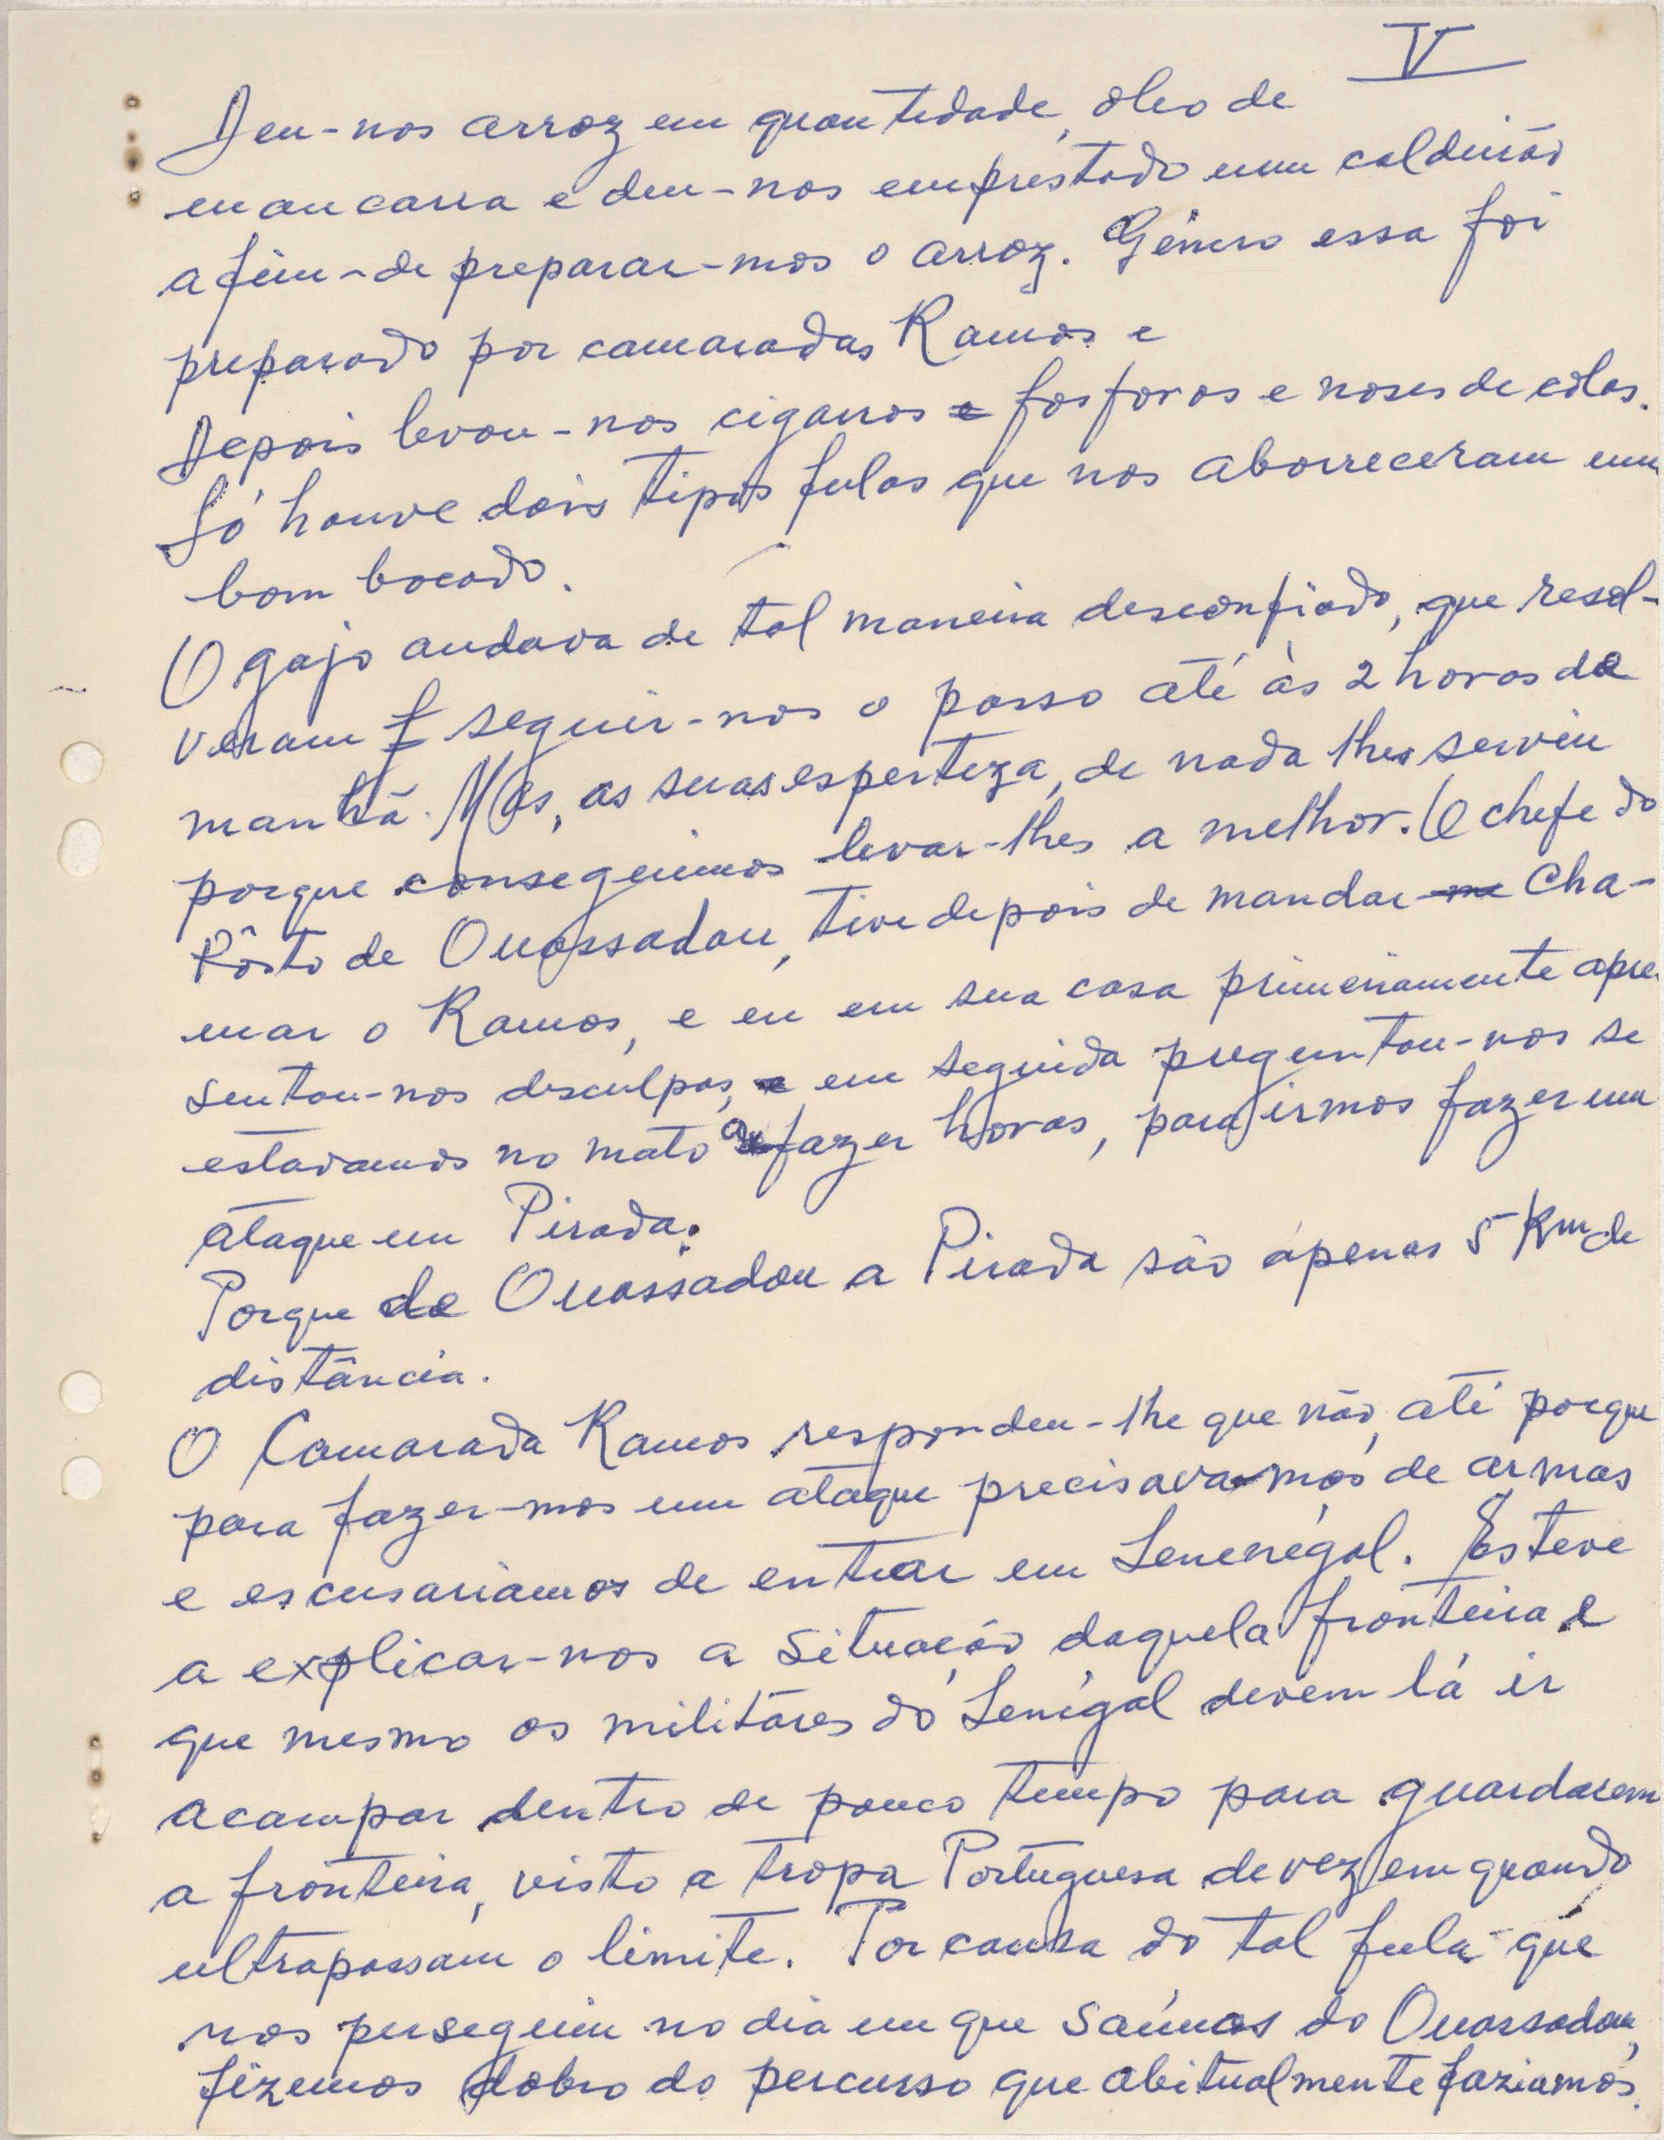 V
Deu-nos arroz em quantidade, óleo de
mancarra e deu-nos emprestado um caldeirão
afim-de preparar-mos o arroz. Género essa foi
preparado por camaradas Ramos e
Depois levou-nos cigarros e fosforos e noses de colas.
Só houve dois tipos fulas que nos aborreceram um
bom bocado.
O gajo andava de tal maneira desconfiado, que resol-
veram seguir-nos o passo até às 2 horas da
manhã. Mas, as suas esperteza, de nada lhes serviu
porque conseguimos levar-lhes a melhor. O chefe do
Pôsto de Ouassadou, tive depois de mandar cha-
mar o Ramos, e eu em sua casa primeiramente apre
sentou-nos desculpas, e em seguida preguntou-nos se
estavamos no mato a fazer horas, para irmos fazer um
ataque em Pirada.
Porque de Ouassadou a Pirada são apenas 5 Km de
distância.
O Camarada Ramos respondeu-lhe que não, até porque
para fazer-mos um ataque precisava-mos de armas
e escusariamos de entrar em Senenégal. Esteve
a explicar-nos a situação daquela fronteira e
que mesmo os militáres do Senégal devem lá ir
acampar dentro de pouco tempo para guardarem
a fronteira, visto a tropa Portuguesa de vez em quando
ultrapassam o limite. Por causa do tal fula que
nos perseguiu no dia em que saímos do Ouassadou,
fizemos dobro do percurso que abitualmente faziamos.